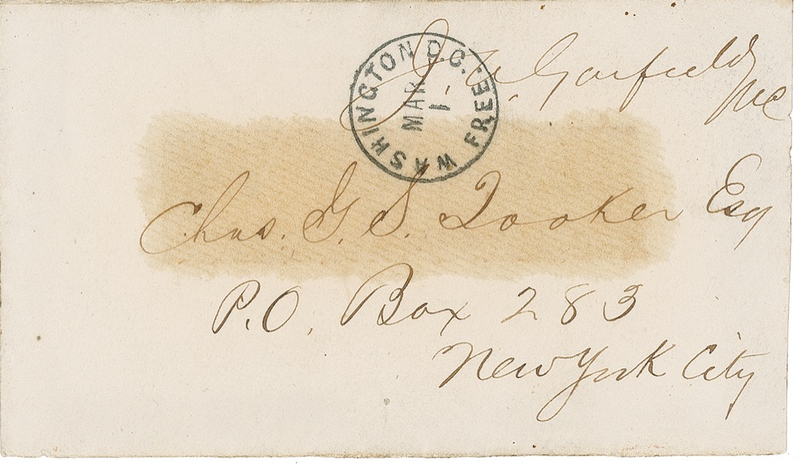 J. A. Garfield
MC
WASHINGTON D.C. FREE
MAR
1
Chas. G. S. Tooker Esq
P.O. Box 283
New York City